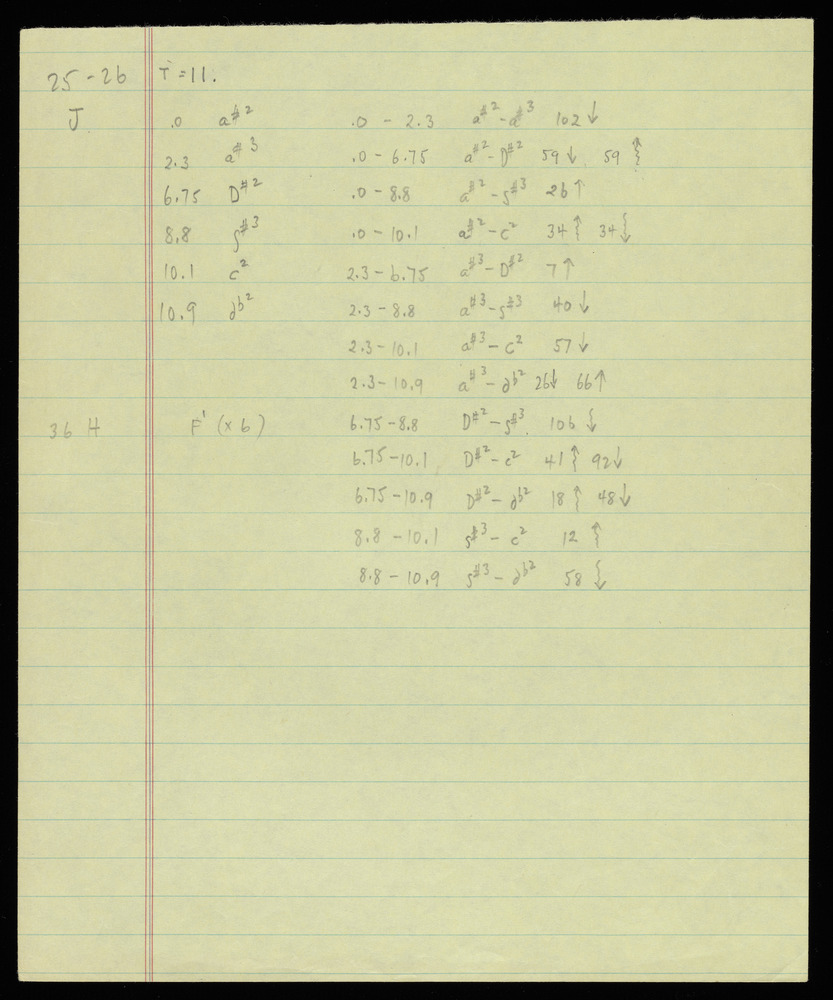 25-26 T=11.
J .0 a#2 .0 - 2.3 a#2-a#3 102↓
2.3 a#3 .0 - 6.75 a#2-D#2 59↓ 59
6.75 D#2 .0 - 8.8 a#2-g#3 26↑
8.8 g#3 .0 - 10.1 a#2-c2 34 34
10.1 c2 2.3-6.75 a#3-D#2 7↑
10.9 db2 2.3-8.8 a#3-g#3 40↓
2.3-10.1 a#3-c2 57↓
2.3-10.9 a#3-db2 26↓ 66↑
36 H F' (x6) 6.75-8.8 D#2-g#3 106
6.75-10.1 D#2-c2 41 92↓
6.75-10.9 D#2-db2 18 48↓
8.8-10.1 g#3-c2 12
8.8-10.9 g#3-db2 58